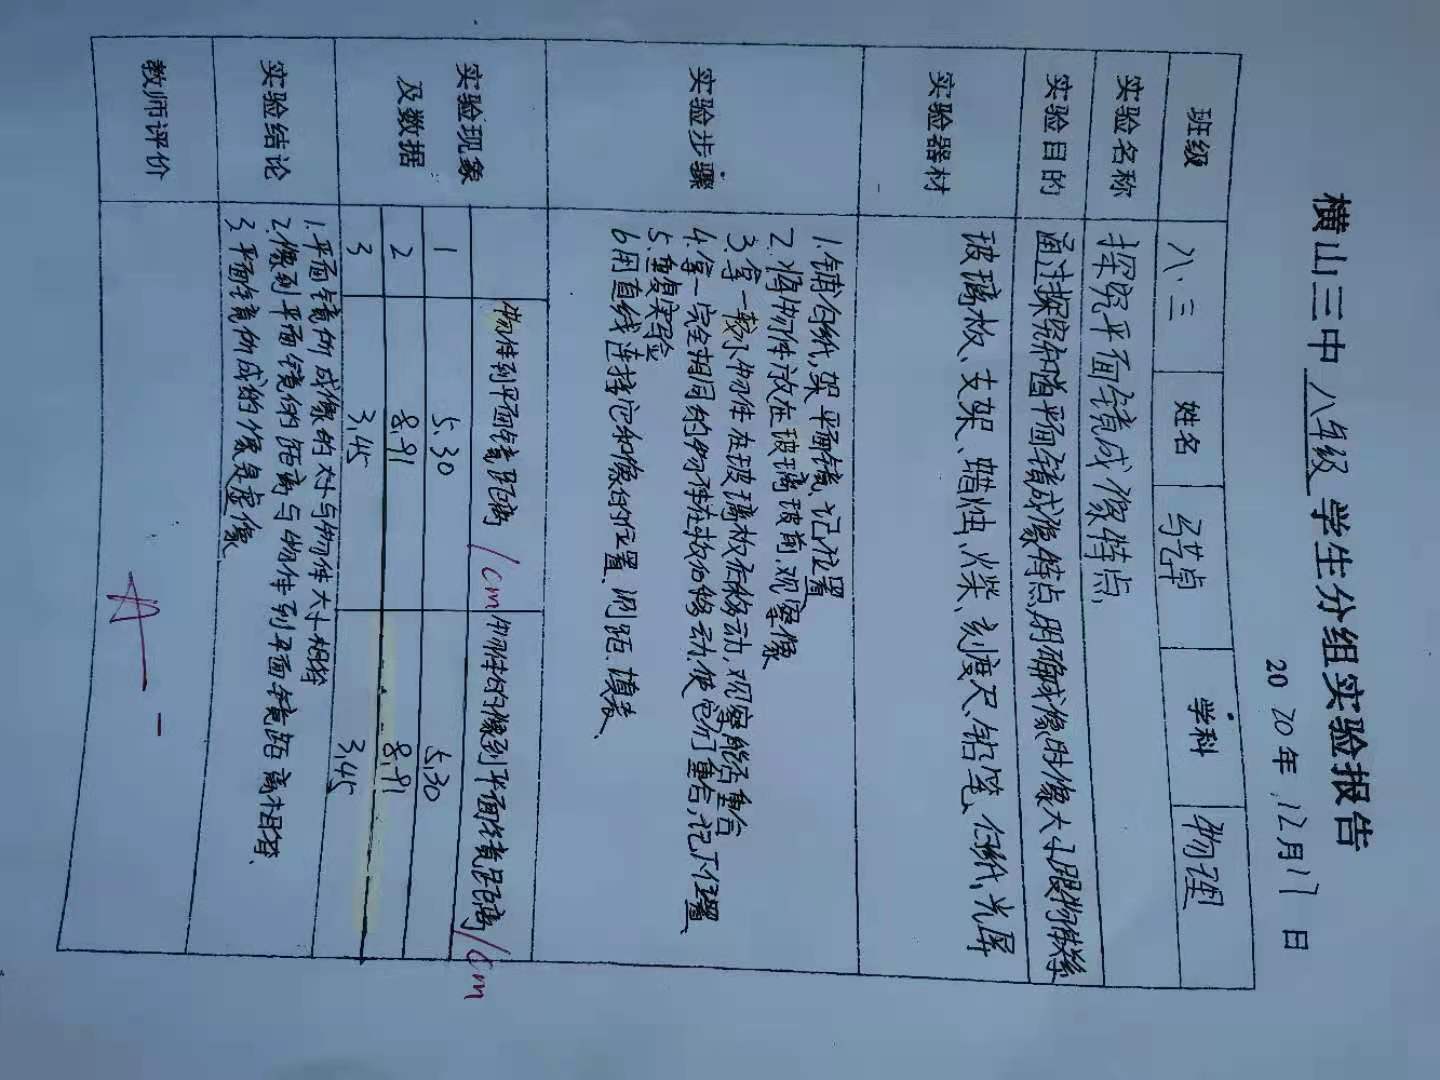 横山三中 八年级 学生分组实验报告
2020年12月17日
班级 八、三 姓名 马艺卓 学科 物理
实验名称 探究平面镜成像特点
实验目的 通过探究知道平面镜成像特点,明确成像时像大小跟物体
实验器材 玻璃板、支架、蜡烛、火柴、刻度尺、铅笔、白纸、光屏
实验步骤
1.铺白纸,架平面镜,记位置
2.将物体放在玻璃板前,观察像
3.拿一较小物体在玻璃板后移动,观察能否重合
4.拿一完全相同的物体在板后移动,使它们重合,记下位置
5.重复实验
6.用直线连接它和像的位置、测距、填表、
实验现象及数据
物体到平面镜距离 /cm 物体的像到平面镜距离 /cm
1 5.30 5.30
2 8.91 8.91
3 3.45 3.45
实验结论
1.平面镜所成像的大小与物体大小相等
2.像到平面镜的距离与物体到平面镜距离相等、
3.平面镜所成的像是虚像
教师评价 A-